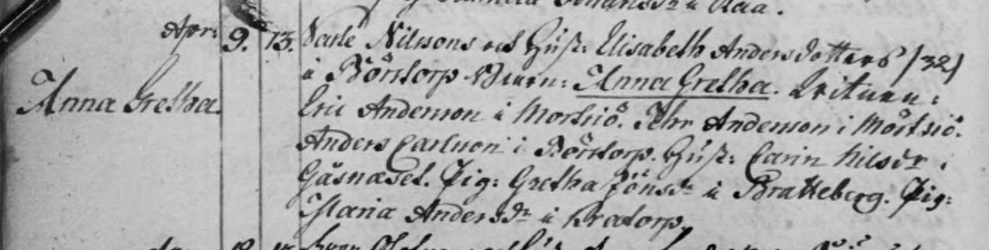 Apr: 9. 13. Carle Nilssons och Hust: Elisabeth Anders dotters /32/
Anna Gretha
i Börstorp Barn: Anna Gretha. Vittnen:
Eric Anderson i Mortsiö. Pehr Anderson i Mörtsiö.
Anders Carlsson i Börstorp. Hust: Carin Nilsdr i
Gåsnäset. Pig: Gretha Jönsdr i Bratteberg. Pig:
Maria Andersdr i Kratorp.